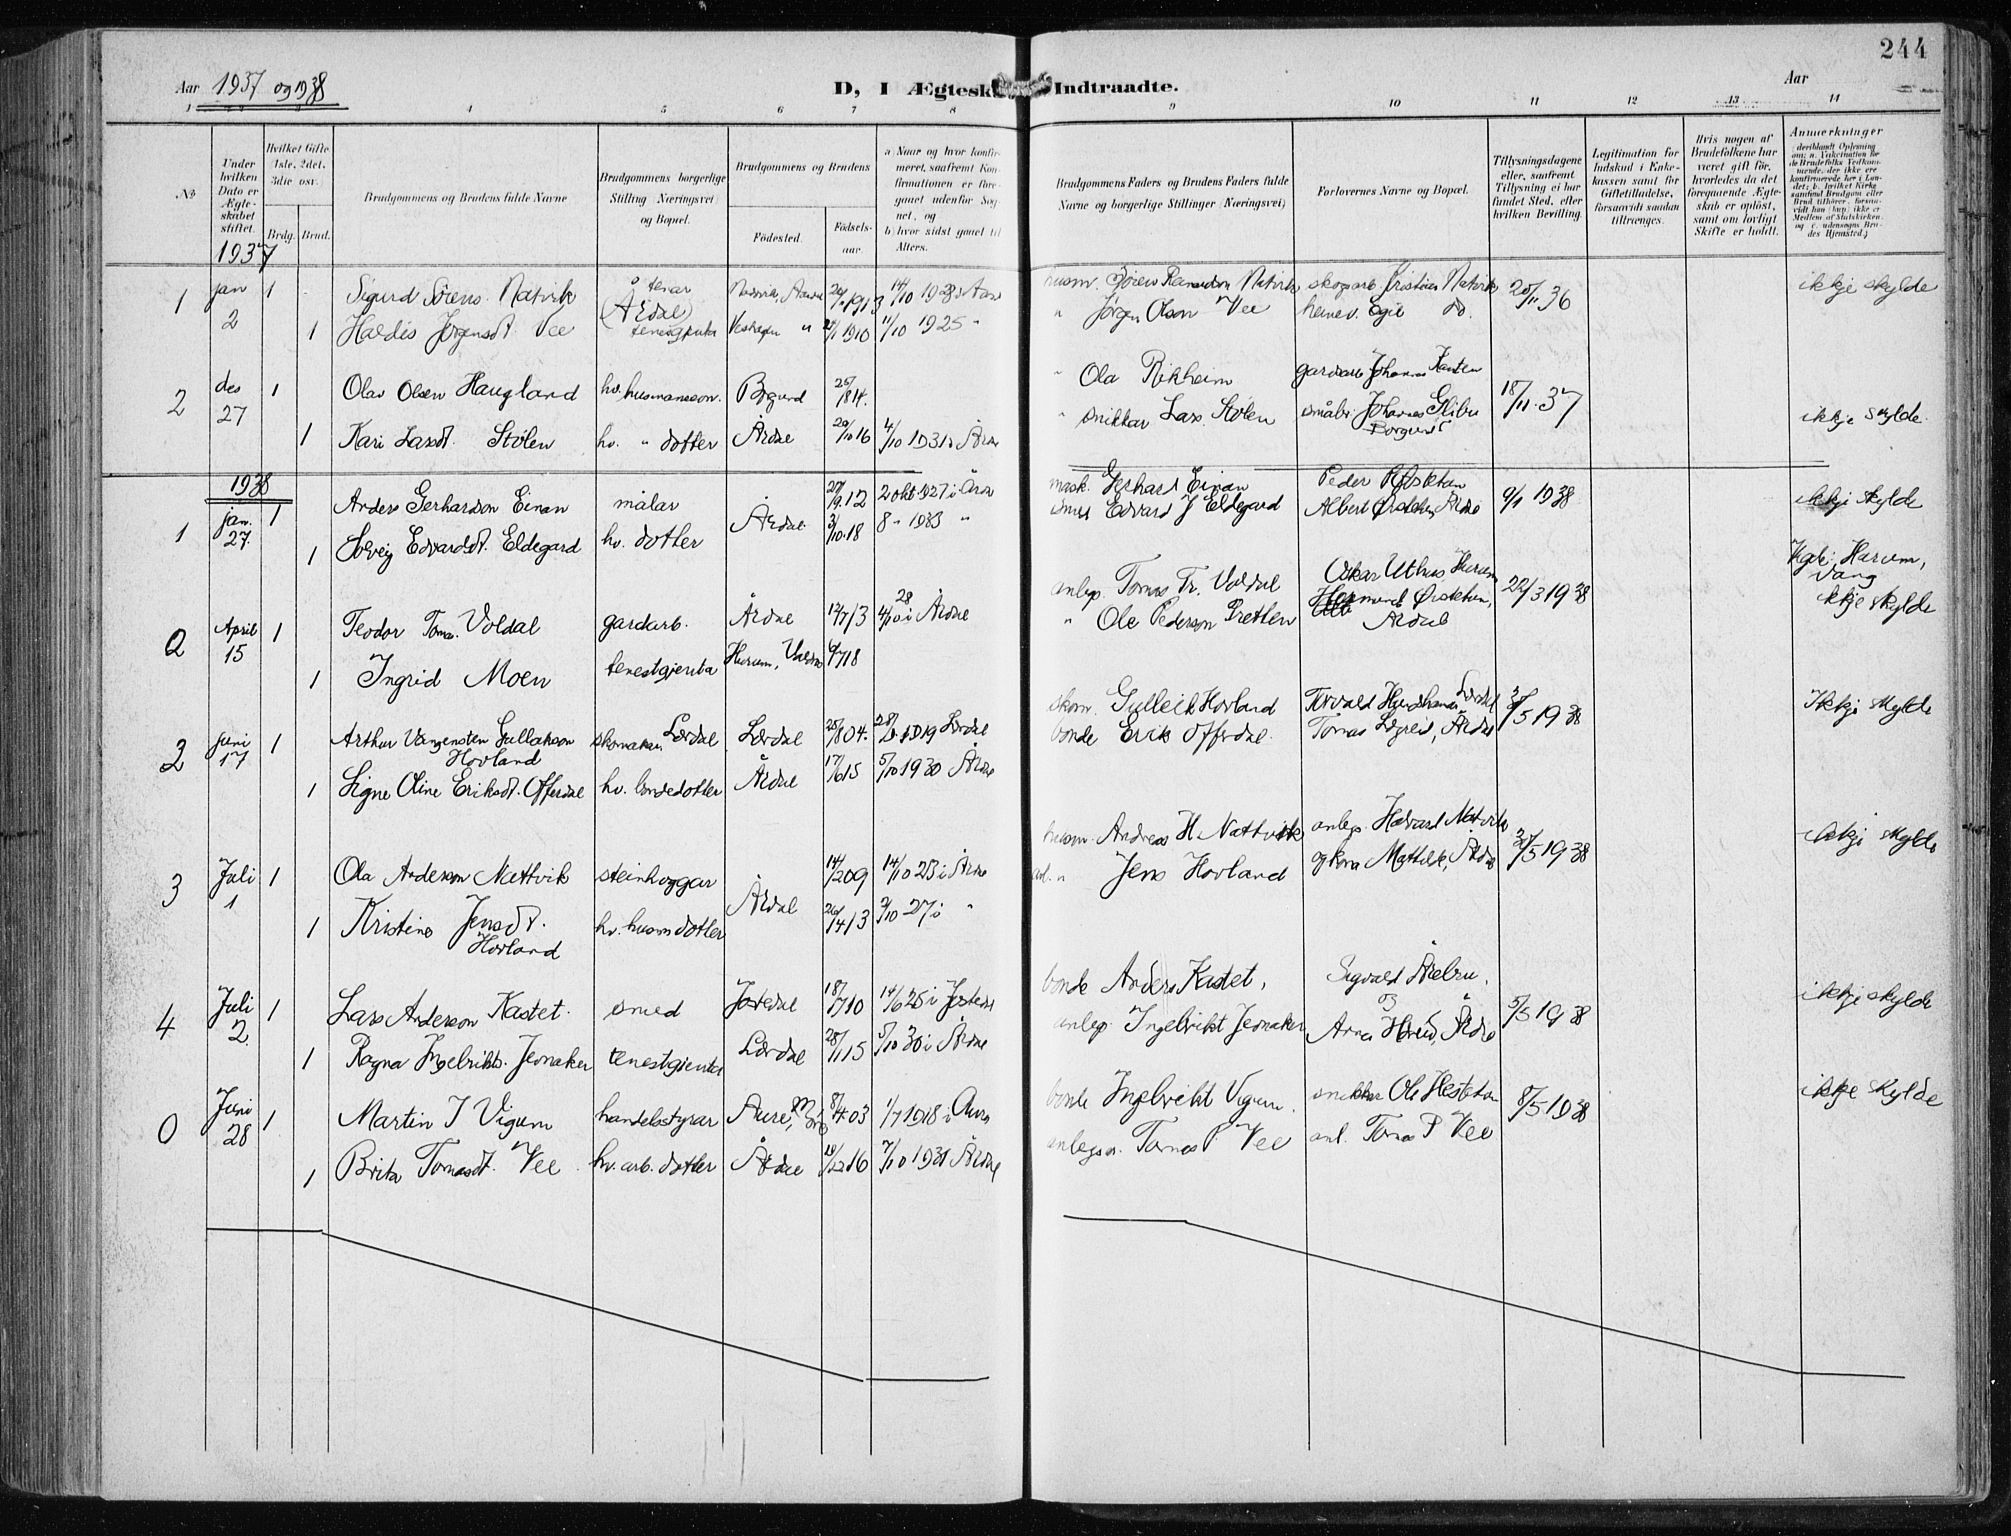 244
Aar 1937 og 1938
D, I Ægtesk Indtraadte.
Aar
1 2 3 4 5 6 7 8 9 10 11 12 13 14
No
Under hvilken Dato er Ægte-skabet stiftet.
Hvilket Gifte 1ste, 2det, 3die osv.
Brdg. Brud.
Brudgommens og Brudens fulde Navne
Brudgommens borgerlige Stilling (Næringsvei) og Bopæl.
Brudgommens og Brudens
Fødested. Fødsels-aar.
a) Naar og hvor konfir-meret, saafremt Kon-firmationen er fore-gaaet udenfor Sog-net, og
b) hvor sidst gaaet til Alters.
Brudgommens Faders og Brudens Faders fulde Navne og borgerlige Stillinger (Næringsvei)
Forlovernes Navne og Bopæl.
Tillysningsdagene eller, saafremt Tillysning ei har fundet Sted, efter hvilken Bevilling.
Legitimation for Indskud i Enke-kassen samt for Giftetilladelse, forsaavidt saadan tiltrænges.
Hvis nogen af Brudefolkene har været gift før, hvorledes da det foregaaende Ægte-skab er opløst, samt om lovligt Skifte er holdt.
Anmærkninger
1937
1 jan 2 1 Sigurd Sørens. Natvik
1 Haldis Jørgensdt. Vee
tenar (Årdal)
tenestgjenta
1913
1910 11/10 1925 "
husm. Søren Natvik
" Jørgen Olson Vee
Kristian Natvik
Egil do.
20/11 36
ikkje skylde
2 des 27 1 Olav Olsen Haugland hv. husmannsson. Borgund 25/8 14.
1 Kari Lasdt. Stølen hv. " dotter Årdal 20/10 16 4/10 1931 i Årdal
" Ola Rikheim
" snikkar Lars Stølen
Johannes
småbr. Johannes
Borgund
18/11. 37
ikkje skylde.
1938
1 jan. 27. 1 Anders Gerhardson Einan målar Årdal 27/9.12 2 okt 1927 i Årdal
1 Solveig Edvardsdt. Eldegard hv. dotter 3/10.18 8 " 1933 "
mask. Gerhard Einan
Edvard J Eldegard
Peder Øistetun
Albert Øistetun, Årdal
9/1 1938
ikkje skylde
2 April 15 1 Teodor Toma. Voldal gardarb. Årdal 12/7 13 4/10 28 i Årdal
1 Ingrid Moen tenestgjenta Hurum, Valdres 4/7 18
anlegs. Tomas Tr. Voldal
" Ole Pederson Bretten
Oskar Uthus Hurum
Hermund Øistetun, Årdal
22/3 1938
Hurum, Vang
ikkje skylde
2 juni 17 1 Arthur Vangensten Gullakson Hovland skomaker Lærdal Lærdal 25/8 04. 1919 Lærdal
1 Signe Oline Eriksdt. Offerdal hv. bondedotter Årdal 17/6 15 5/10 1930 Årdal
skom. Gulleik Hovland
bonde Erik Offerdal.
Torvald Lærdal
Tomas Lægreid, Årdal
5 1938
Ikkje skylde
3 Juli 1 1 Ola Anderson Nattvik steinhoggar Årdal 14/2 09 14/10 23 i Årdal
1 Kristine Jensdt. Hovland hv. husm dotter 26/4 13 2/10 27 i "
husm. Andreas H. Nattvik
" Jens Hovland
anlegs. Halvard Natvik
og kona Mathilde, Årdal
5 1938
ikkje skylde
4 Juli 2. 1 Lars Anderson Kastet. smed Jostedal 18/7 10 14/6 25 i Jostedal
1 Ragna Ingebrikts. Jernaker tenestgjenta Lærdal 28/1 15 5/10 30 i Årdal
bonde Anders Kastet,
anlegs. Ingebrikt Jernaker
Sigvald
og
Arne Hereid, Årdal
5/5 1938
ikkje skylde
0 Juni 28 1 Martin I Vigum handelsstyrar Aure, 8/4 03 1/7 1918 i Aure
1 Brita Tomasdt. Vee hv. arb. dotter Årdal 19/12 16 7/10 1931 Årdal
bonde Ingebrikt Vigum.
anlegsa. Tomas P Vee
snikkar Ole Hestetun
anl. Tomas P Vee
8/5 1938
ikkje skylde